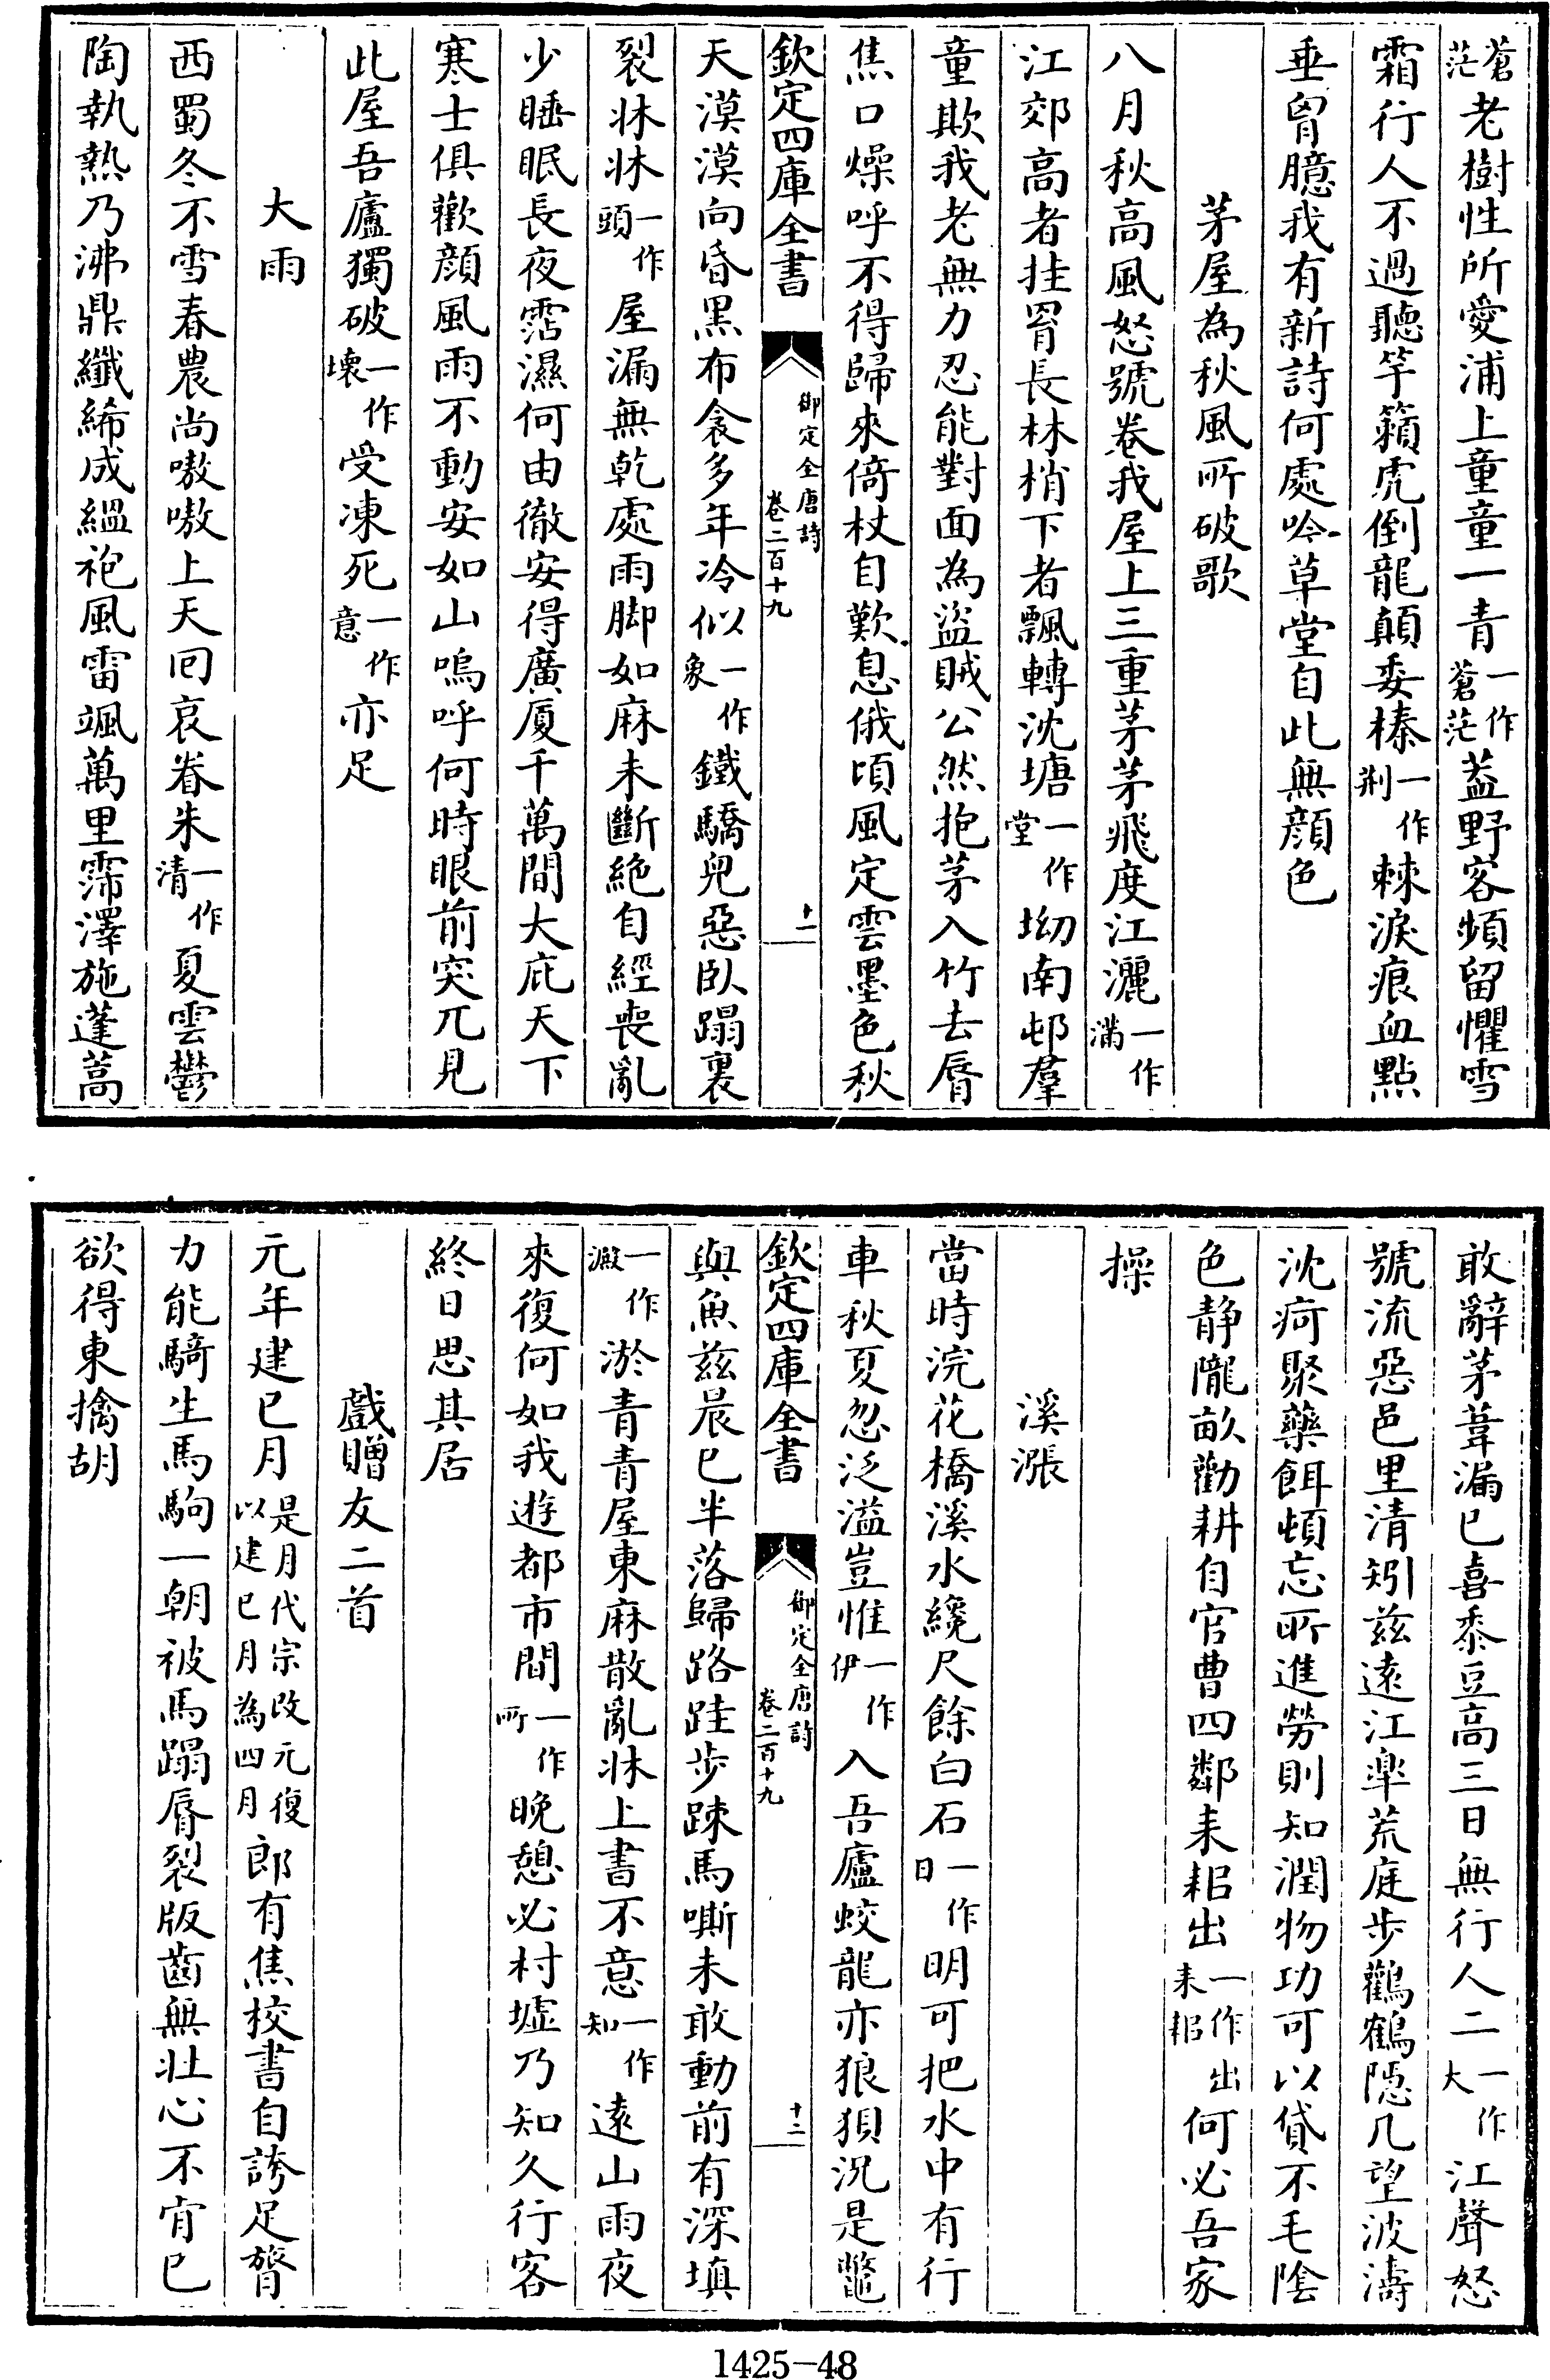 蒼茫老樹性所愛浦上童童一青一作蒼茫葢野客頻留懼雪
霜行人不過聽竽籟虎倒龍顛委榛一作荆棘淚痕血點
垂胷臆我有新詩何處吟草堂自此無顔色
茅屋為秋風所破歌
八月秋高風怒號卷我屋上三重茅茅飛度江灑一作滿
江郊高者挂罥長林梢下者飄轉沈塘一作堂坳南邨羣
童欺我老無力忍能對面為盜賊公然抱茅入竹去脣
焦口燥呼不得歸來倚杖自歎息俄頃風定雲墨色秋
欽定四庫全書
御定全唐詩
卷二百十九
十一
天漠漠向昏黑布衾多年冷似一作象鐵驕兒惡臥蹋裏
裂牀牀一作頭屋漏無乾處雨脚如麻未斷絶自經喪亂
少睡眠長夜霑濕何由徹安得廣厦千萬間大庇天下
寒士俱歡顔風雨不動安如山嗚呼何時眼前突兀見
此屋吾廬獨破一作壊受凍死一作意亦足
大雨
西蜀冬不雪春農尚嗷嗷上天囘哀眷朱一作清夏雲鬱
陶執熱乃沸鼎纖絺成緼袍風雷颯萬里霈澤施蓬蒿
敢辭茅葦漏已喜黍豆高三日無行人二一作大江聲怒
號流惡邑里清矧兹遠江臯荒庭步鸛鶴隠几望波濤
沈疴聚藥餌頓忘所進勞則知潤物功可以貸不毛陰
色静隴畝勸耕自官曹四鄰耒耜出一作出耒耜何必吾家
操
溪漲
當時浣花橋溪水纔尺餘白石一作日明可把水中有行
車秋夏忽泛溢豈惟一作伊入吾廬蛟龍亦狼狽況是鼈
與魚兹晨已半落歸路跬步踈馬嘶未敢動前有深填
一作澱淤青青屋東麻散亂牀上書不意一作知遠山雨夜
來復何如我遊都市間一作所晚憩必村墟乃知久行客
終日思其居
戲贈友二首
元年建巳月是月代宗改元復以建巳月為四月郎有焦校書自誇足膂
力能騎生馬駒一朝被馬蹋脣裂版齒無壯心不肯已
欲得東擒胡
欽定四庫全書
御定全唐詩
卷二百十九
十二
1425-48